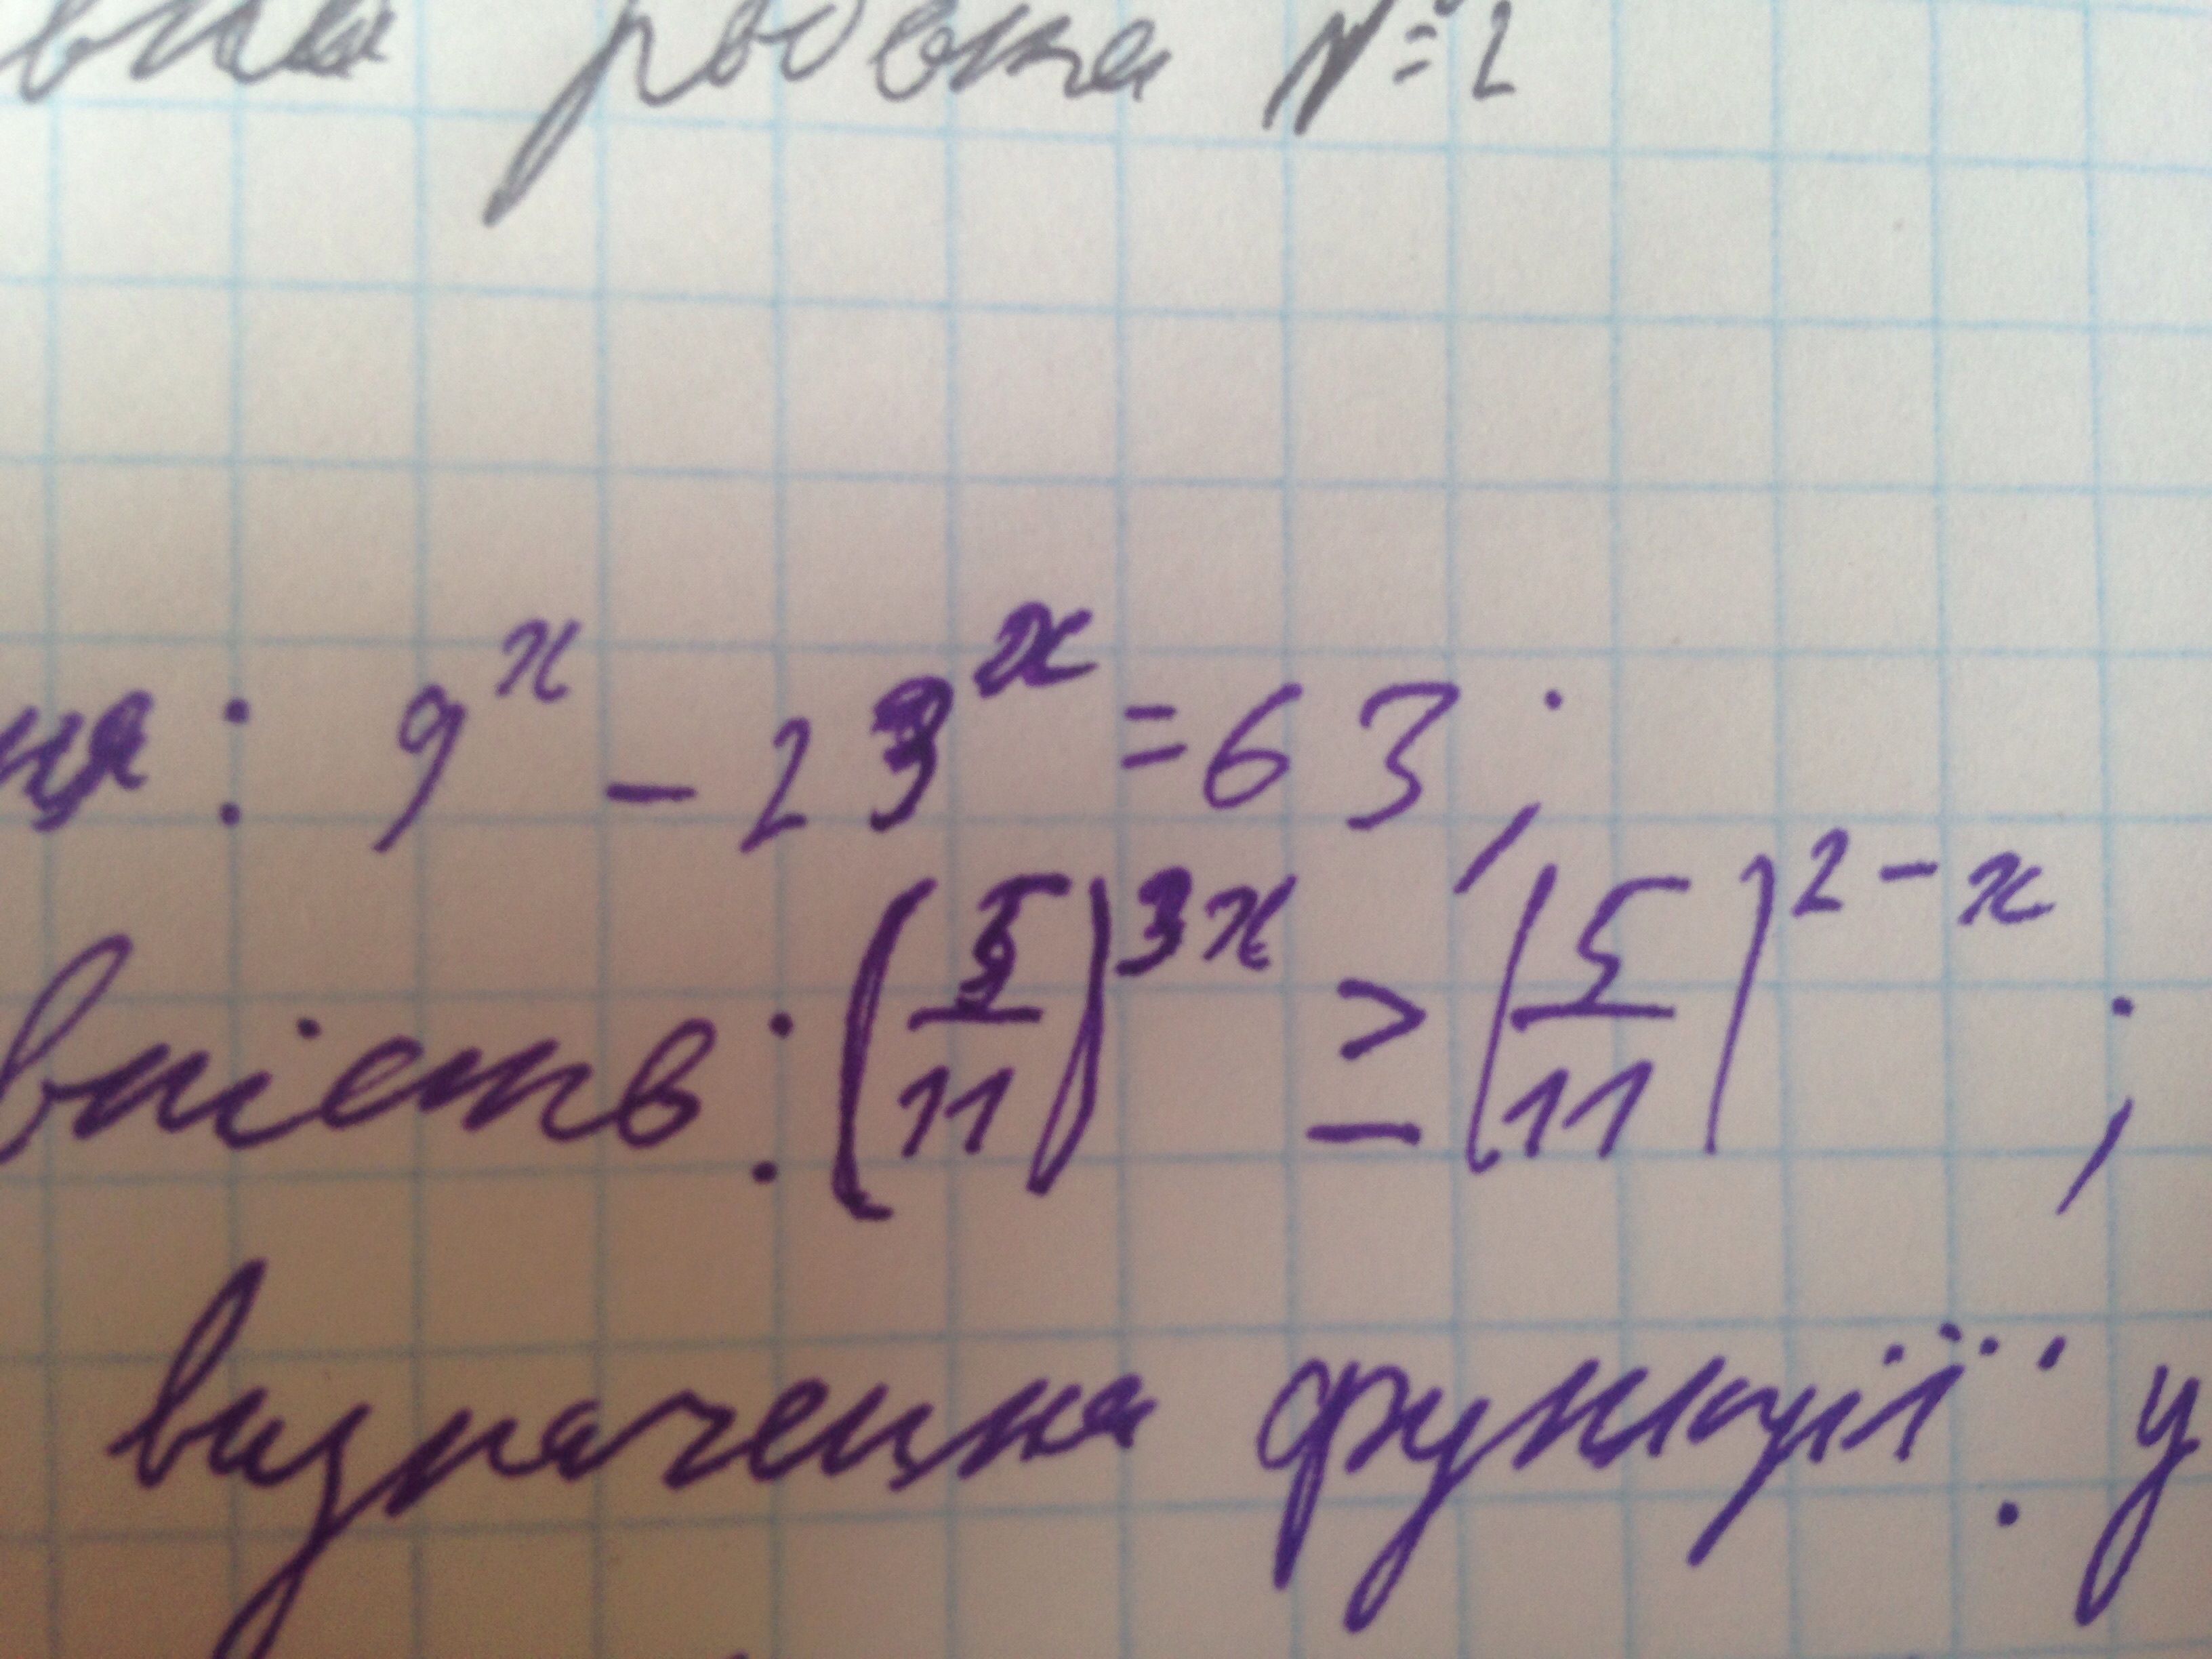 вна робота №2
ня: 9^x - 2 3^x = 63;
вність: (5/11)^3x ≥ (5/11)^2-x;
визначення функції: y